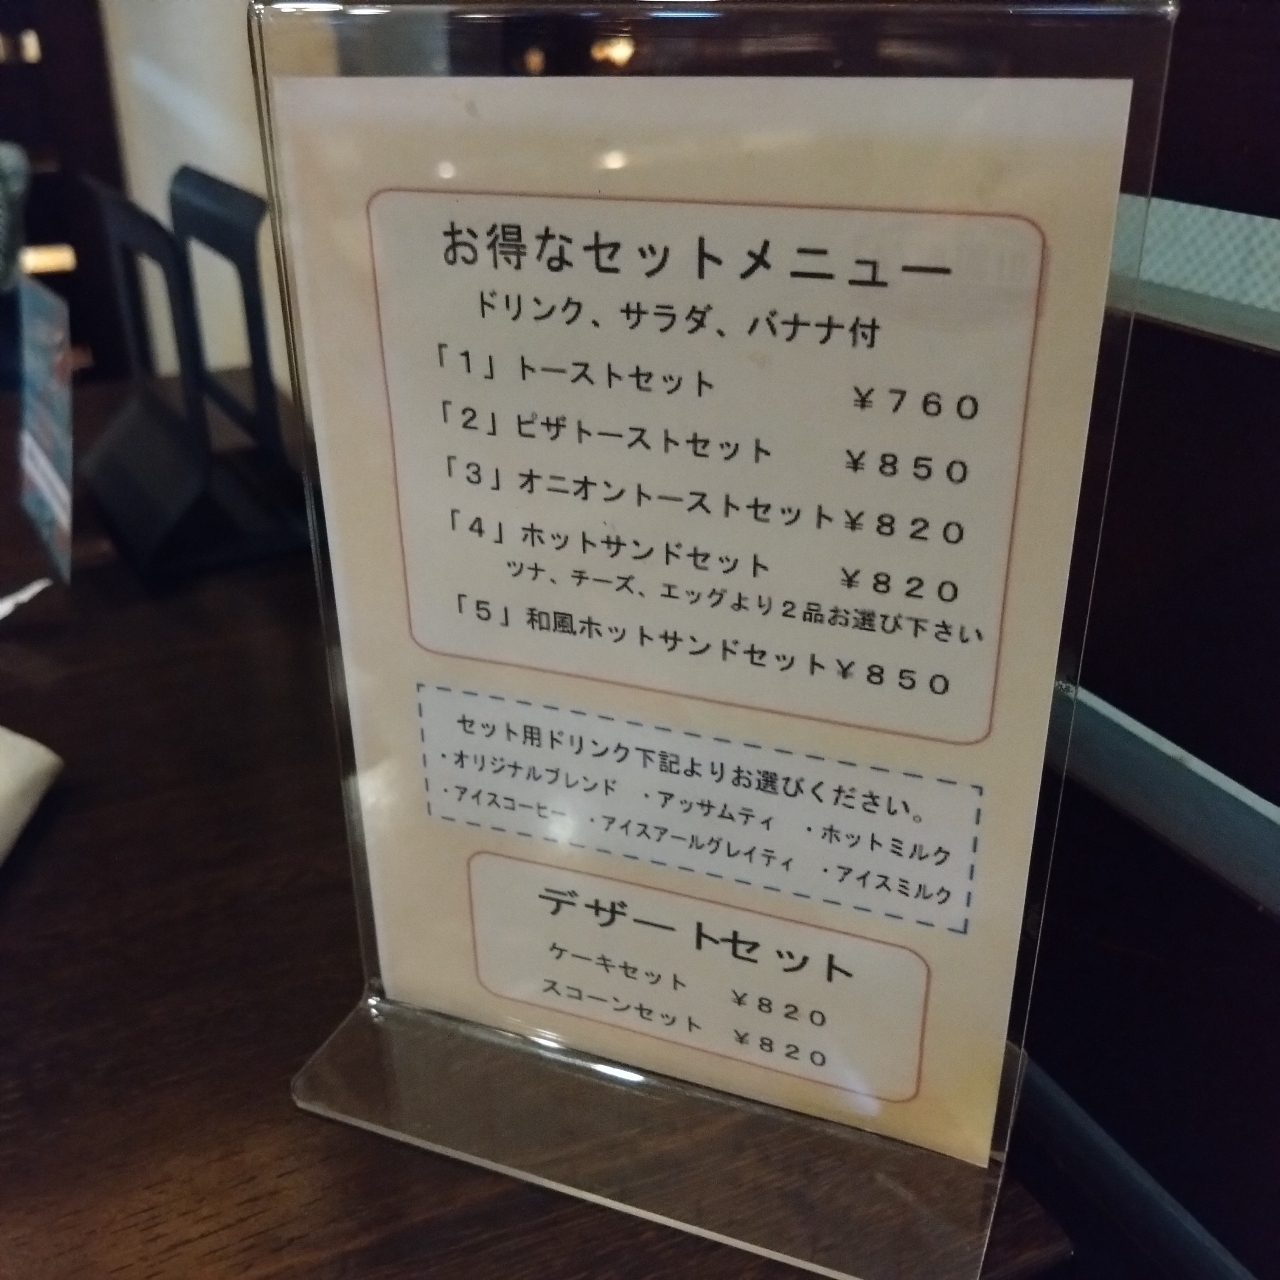 お得なセットメニュー
ドリンク、サラダ、バナナ付
「1」トーストセット ￥760
「2」ピザトーストセット ￥850
「3」オニオントーストセット￥820
「4」ホットサンドセット ￥820
ツナ、チーズ、エッグより2品お選び下さい
「5」和風ホットサンドセット￥850
セット用ドリンク下記よりお選びください。
・オリジナルブレンド ・アッサムティ ・ホットミルク
・アイスコーヒー ・アイスアールグレイティ ・アイスミルク
デザートセット
ケーキセット ￥820
スコーンセット ￥820